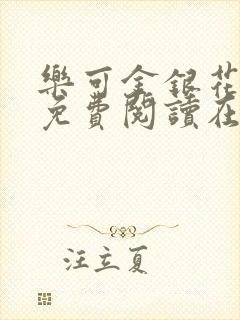 樂可金銀花
免費閱讀在
汪立夏